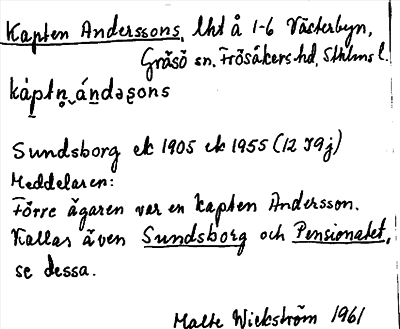 Kapten Anderssons, lht å 1-6 Västerbyn,
Gräsö sn. Frösåkers hd, Sthlms l.
káptn̥ ándəʂons
Sundsborg ek 1905 ek 1955 (12 I9j)
Meddelaren:
Förre ägaren var en kapten Andersson.
Kallas även Sundsborg och Pensionatet,
se dessa.
Malte Wickström 1961